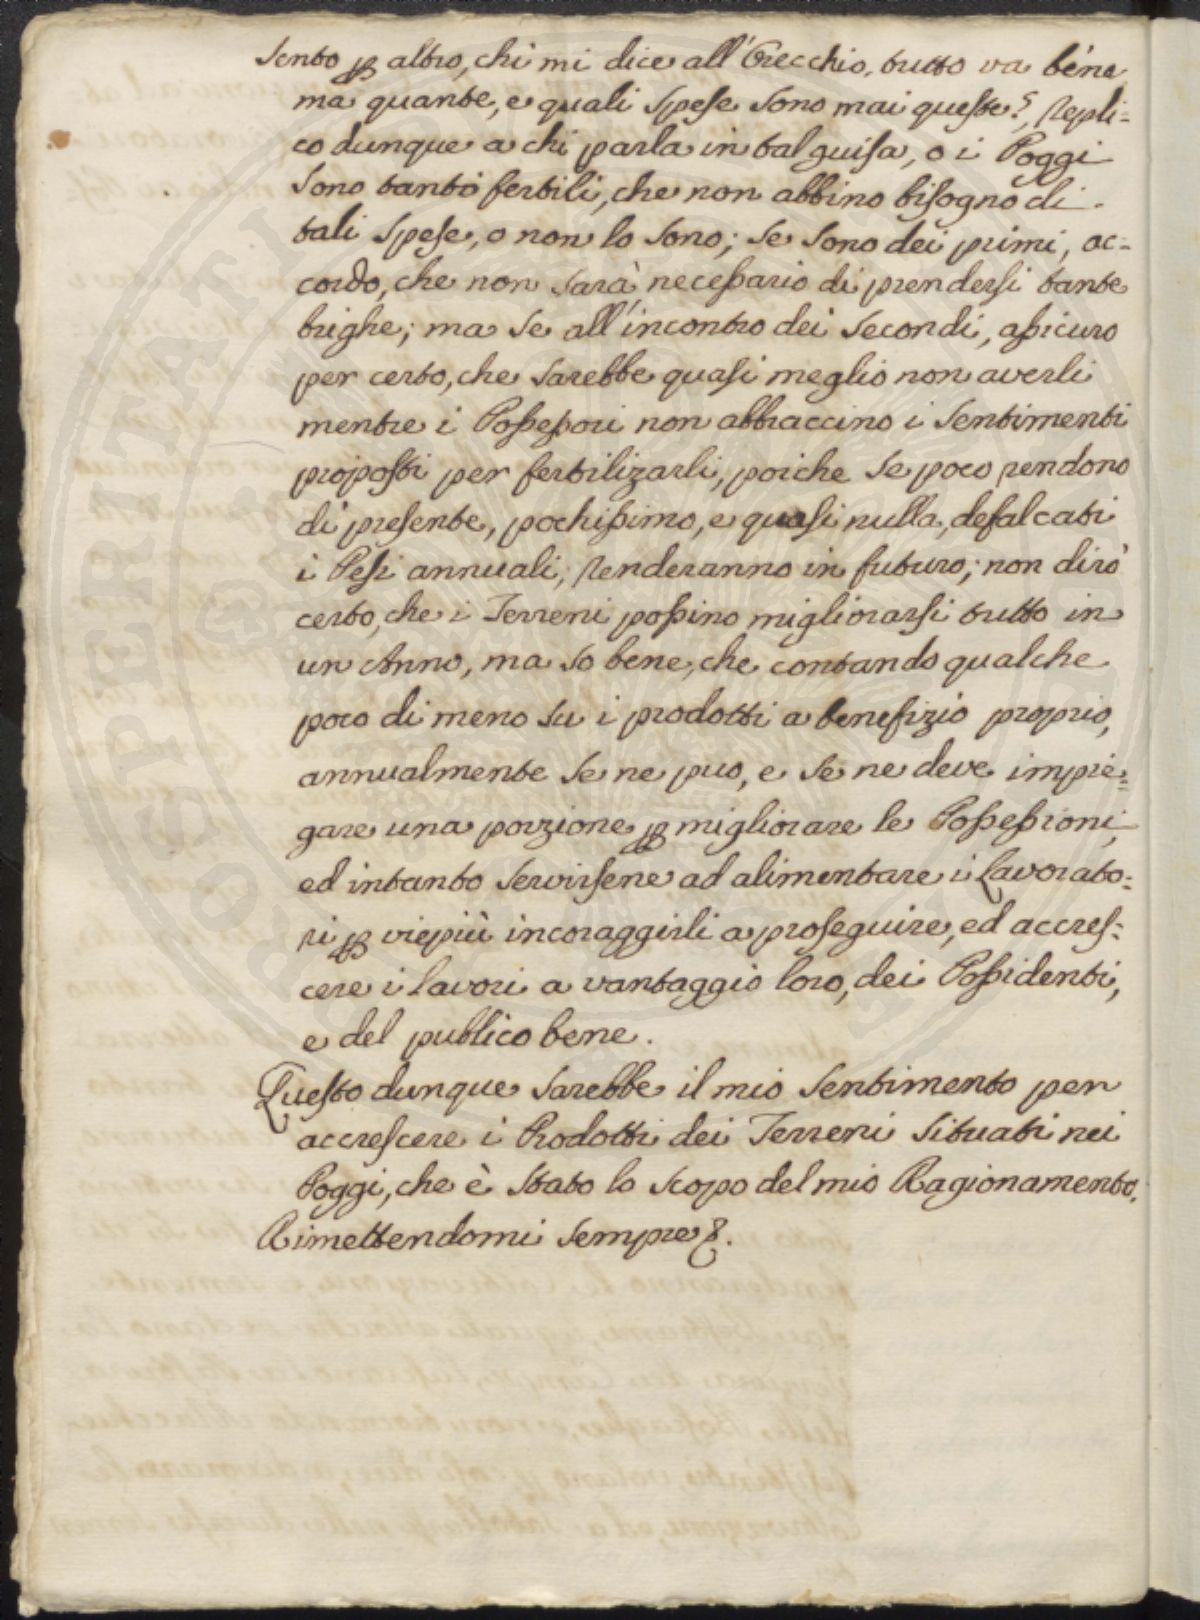 Sento ꝑ altro, chi mi dice all'Orecchio, tutto va bene
ma quante, e quali Spese sono mai queste?, Repli=
co dunque a chi parla in tal guisa, o i Poggi
sono tanto fertili, che non abbino bisogno di
tali Spese, o non lo sono; se sono dei primi, ac=
cordo, che non sarà necessario di prendersi tante
brighe; ma se all'incontro dei secondi, assicuro
per certo, che sarebbe quasi meglio non averli
mentre i Possessori non abbraccino i sentimenti
proposti per fertilizarli, poiche se poco rendono
di presente, pochissimo, e quasi nulla, defalcati
i Pesi annuali, renderanno in futuro; non dirò
certo, che i Terreni possino migliorarsi tutto in
un Anno, ma so bene, che contando qualche
poco di meno su i prodotti a benefizio proprio,
annualmente se ne puo, e se ne deve impie=
gare una porzione ꝑ migliorare le Possessioni,
ed intanto servirsene ad alimentare i Lavorato=
ri ꝑ viepiù incoraggirli a proseguire, ed accres=
cere i lavori a vantaggio loro, dei Possidenti,
e del publico bene.
Questo dunque sarebbe il mio sentimento per
accrescere i Prodotti dei Terreni situati nei
Poggi, che è stato lo scopo del mio Ragionamento.
Rimettendomi sempre &.
PROSPERITATI